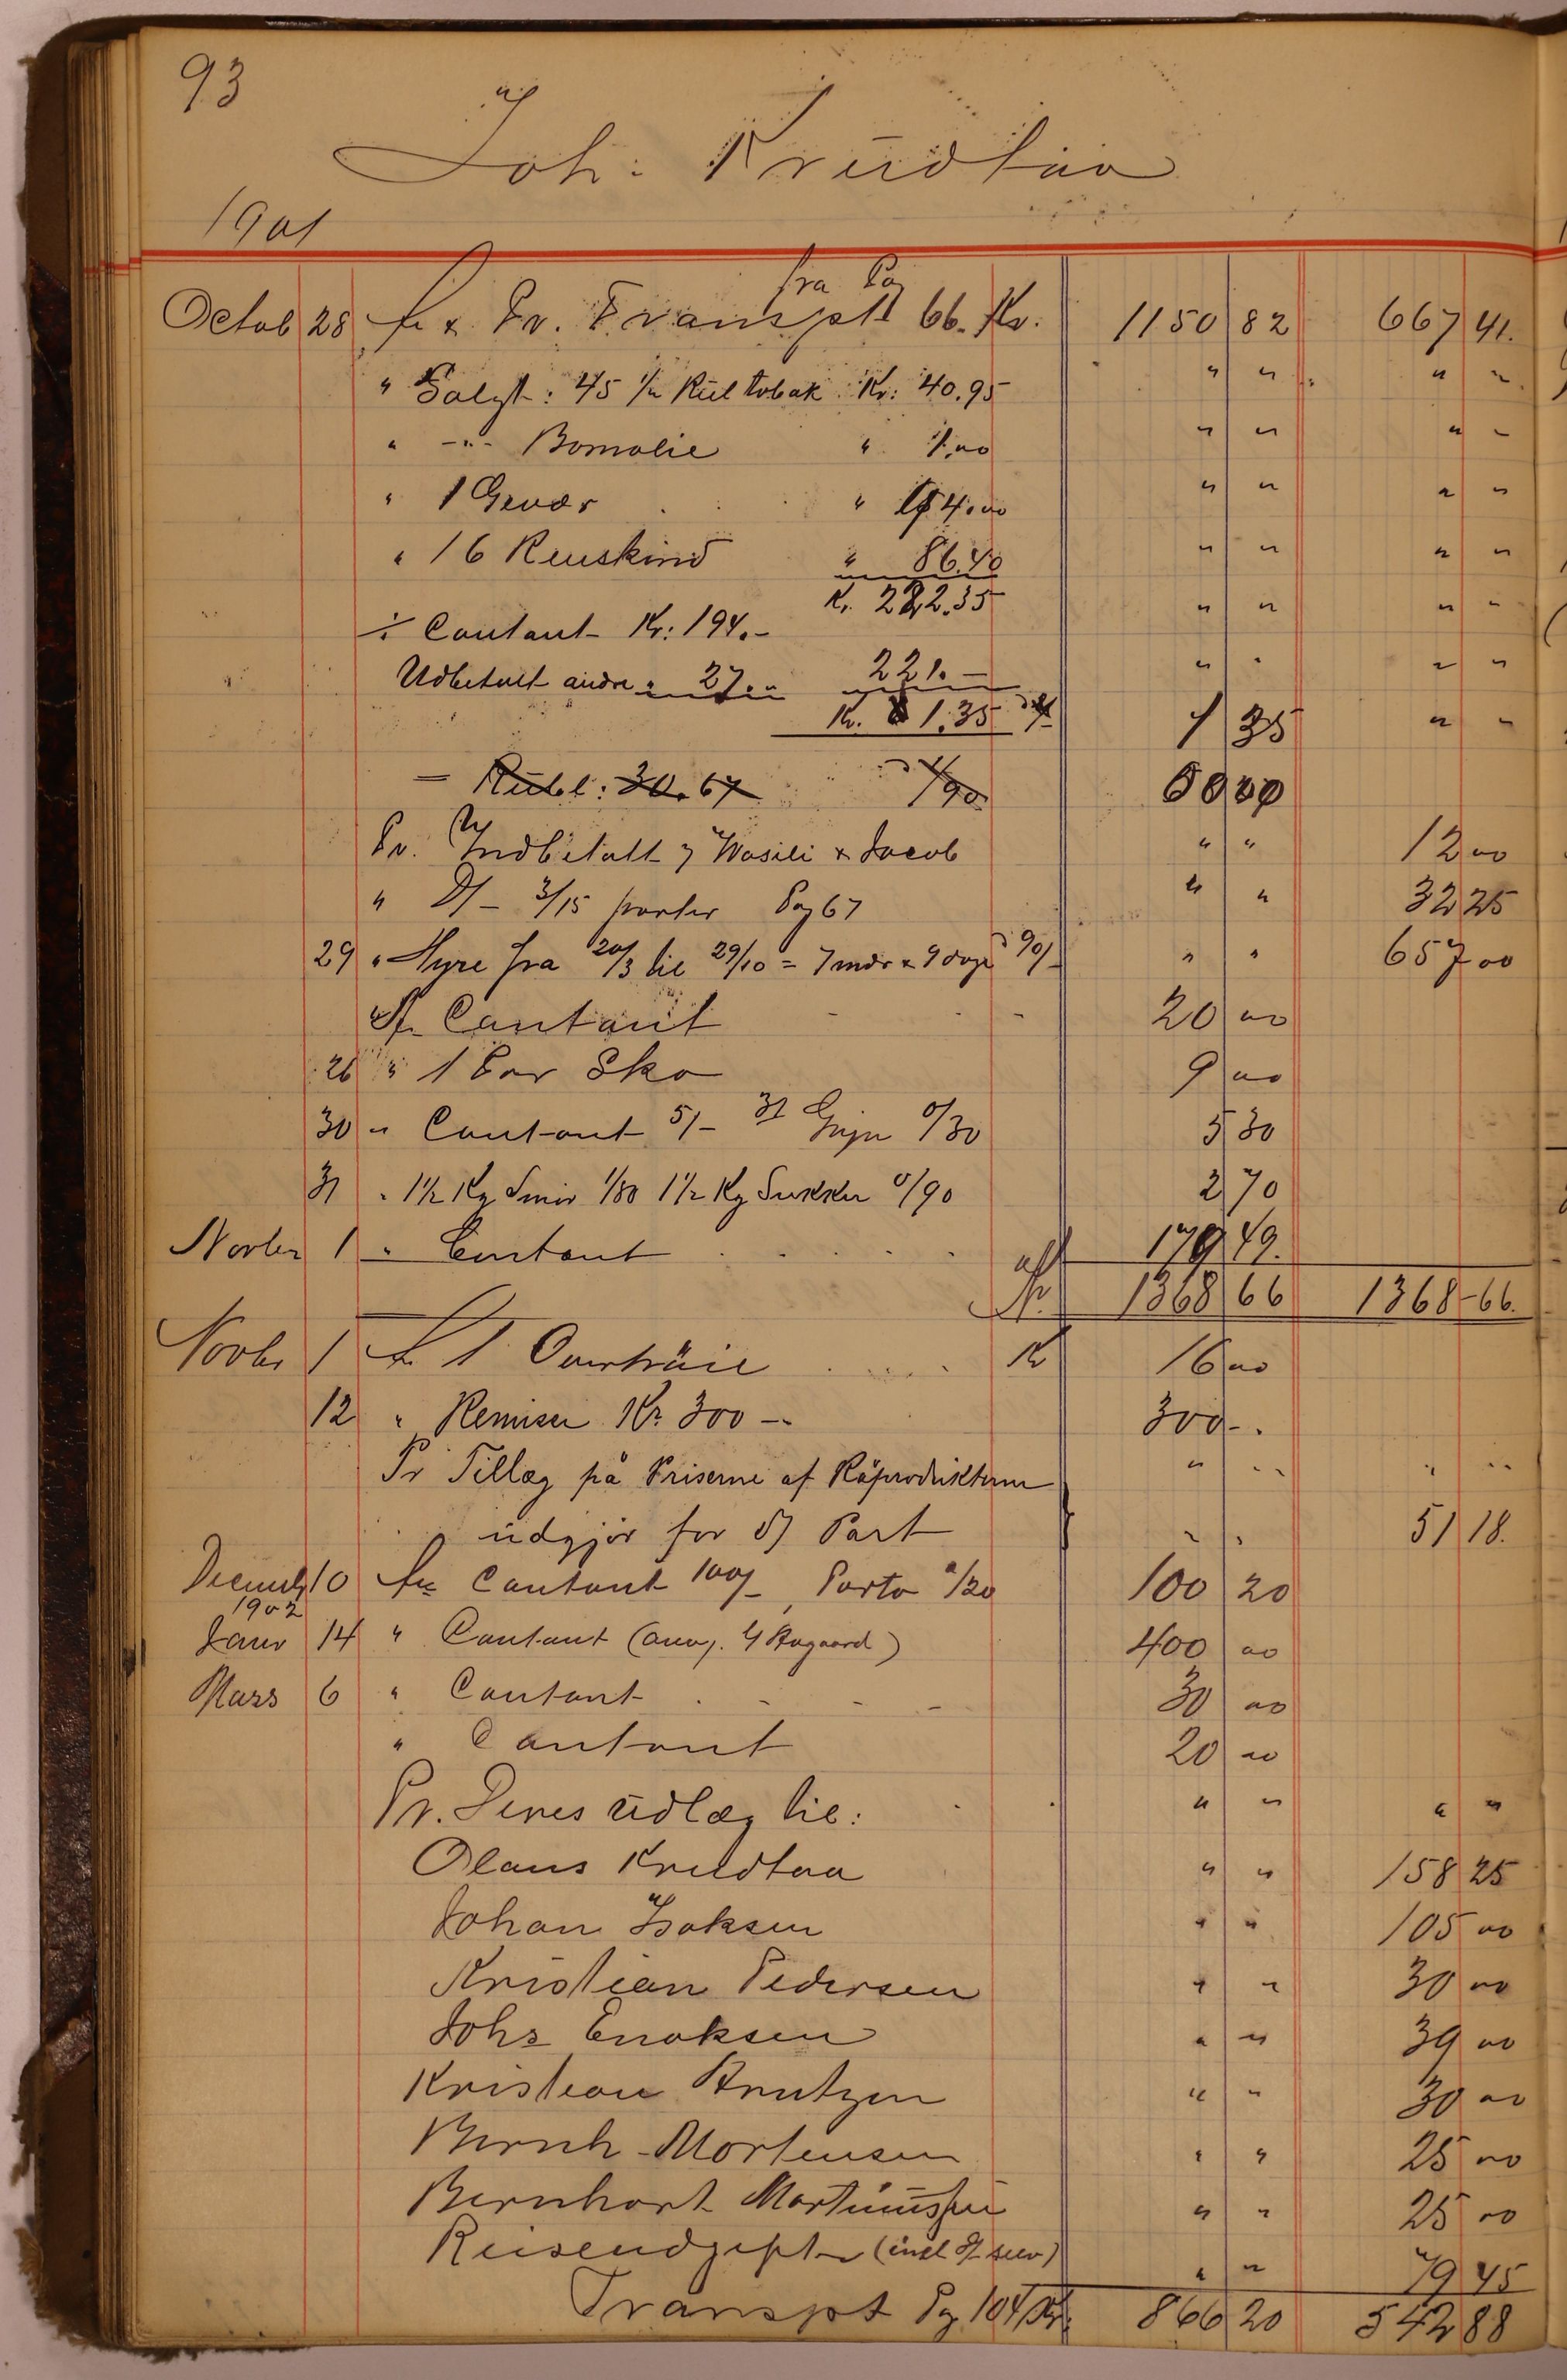 93
Joh: Krüdtaa
1901
fra Pag
Octob 28 Pr. Transpt 66. Kr. 1150 82 667 41.
" Solgt: 45 Rül tobak Kr: 40.95 " " " "
" -"- Bomolie " 1.00 " " " "
" 1 Gevær " 4.00 " " " "
" 16 Renskind " 86.40 " " " "
Kr. 222.35
÷ Contant Kr: 194.- " " " "
Udbetalt andre " 27." 221.- " " " "
Kr. 1.35 1 35 " "
= Rübl: 30.67 1/90
Pr. Indbetalt Wasili & Jacob " " 12 00
" 3/15 parter Pag 67 " " 32 25
29 " Hyre fra 20/3 til 29/10 = 7 mdr & 9 dage 90/- " " 657 00
Contant 20 00
26 " 1 Par Sko 9 00
30 " Contant 5/- 0/30 5 30
31 " 1½ Kg Smør 1/80 1½ Kg Sukker 0/90 2 70
Novber 1 " Contant 179 49.
Kr. 1368 66 1368-66.
Novbr 1 1 Kr 16 00
12 " Remisse Kr. 300 -- 300 -.
Pr Tillæg på Priserne af Råprodukterne " " " "
udgjør for Part " " 51 18.
Decemb 10 Contant 100/-, Porto 0/20 100 20
1902
Janr 14 " Contant (Aagaard) 400 00
Mars 6 " Contant 30 00
" Contant 20 00
Pr. Deres Udlæg til: " " " "
Olaus Krudtaa " " 158 25
Johan Isaksen " " 105 00
Kristian Pedersen " " 30 00
Johs Enoksen " " 39 00
Kristian Arntzen " " 30 00
Bernh. Mortensen " " 25 00
Bernhart Martinussen " " 25 00
Reiseudgifter (inkl selv) " " 79 45
Transpt Pg 104 Kr. 866 20 542 88